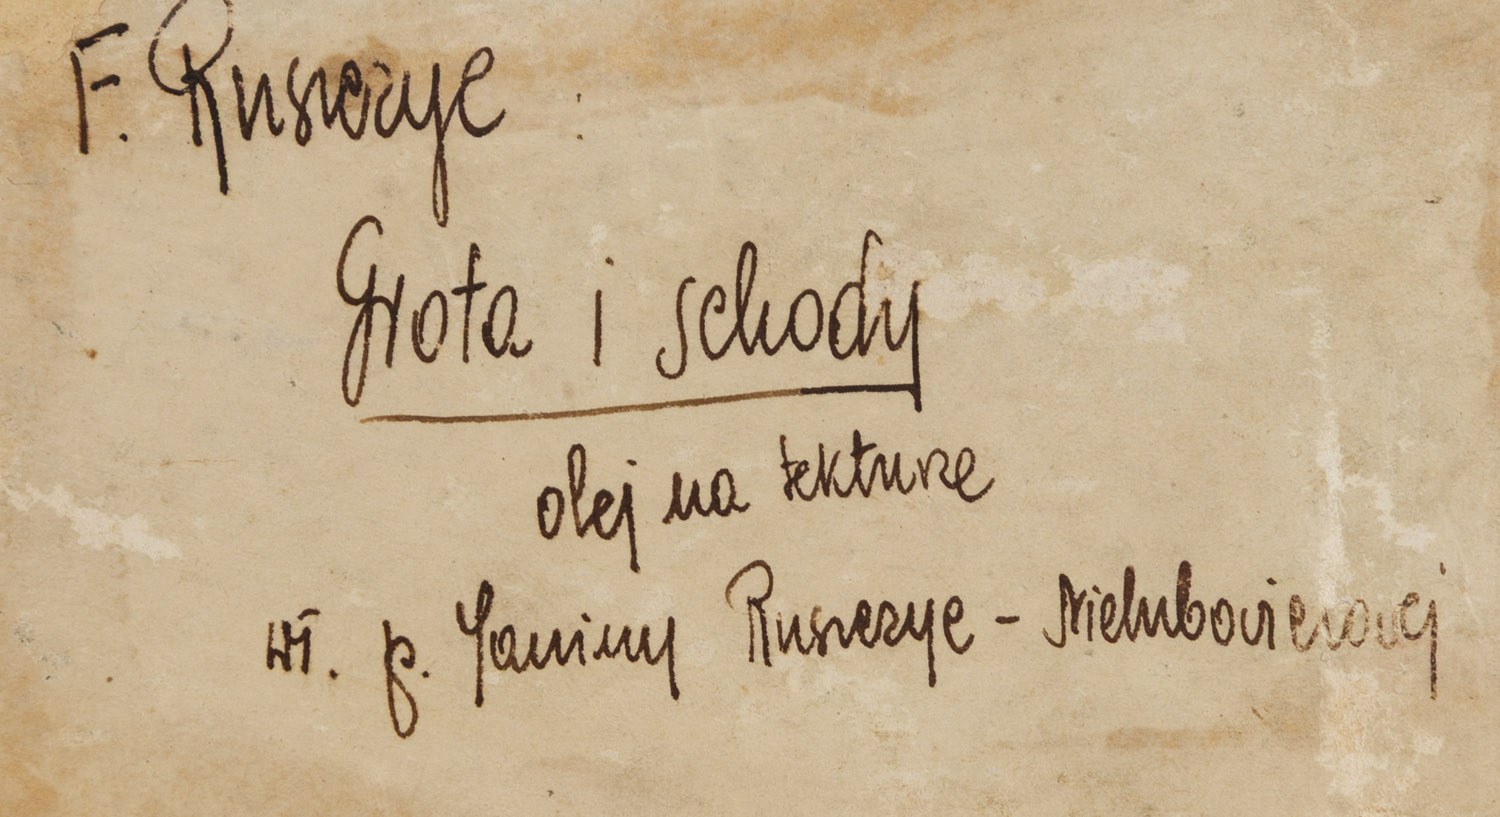 F. Ruszczyc :
Grota i schody
olej na tekturze
wł. p. Janiny Ruszczyc -